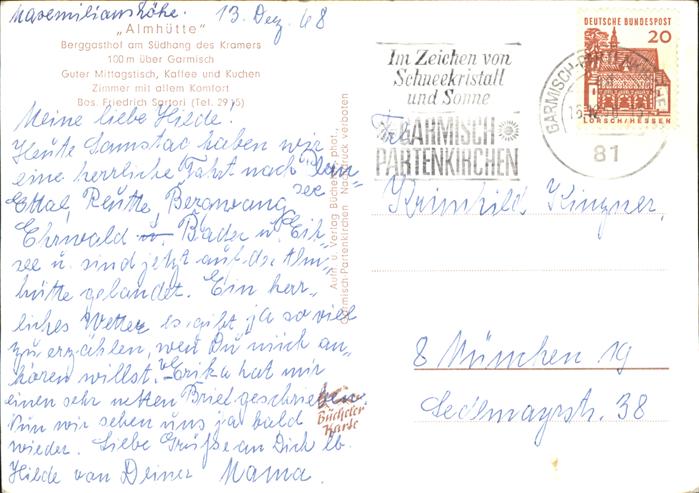 Maxemilianshöhe. 13. Dez. 68
„Almhütte"
Berggasthof am Südhang des Kramers
100 m über Garmisch
Guter Mittagstisch, Kaffee und Kuchen
Zimmer mit allem Komfort
Bes. Friedrich Sartori (Tel. 2915)
Meine liebe Hilde!
Heute Samstag haben wir
eine herrliche Fahrt nach
Ettal, Reutte, Berwang,
see
Ehrwald u. Bader u. Eib-
see u. sind jetzt auf der Alm-
hütte gelandet. Ein herr-
liches Wetter es gibt ja so viel
zu erzählen, wen Du mich an-
hören willst. Erika hat mir
einen sehr netten Brief geschrieben.
Nun wir sehen uns ja bald
wieder. Liebe Grüße an Dich lb.
Hilde von Deiner Mama.
Aufn. u. Verlag Bücheler, phot.
Garmisch-Partenkirchen Nachdruck verboten
Bücheler
Karte
Im Zeichen von
Schneekristall
und Sonne
GARMISCH
PARTENKIRCHEN
GARMISCH-PARTENKIRCHEN
81
DEUTSCHE BUNDESPOST
20
LORSCH/HESSEN
Fr.
Krimhild Kinzner,
8 München 19
Sedlmayrstr. 38